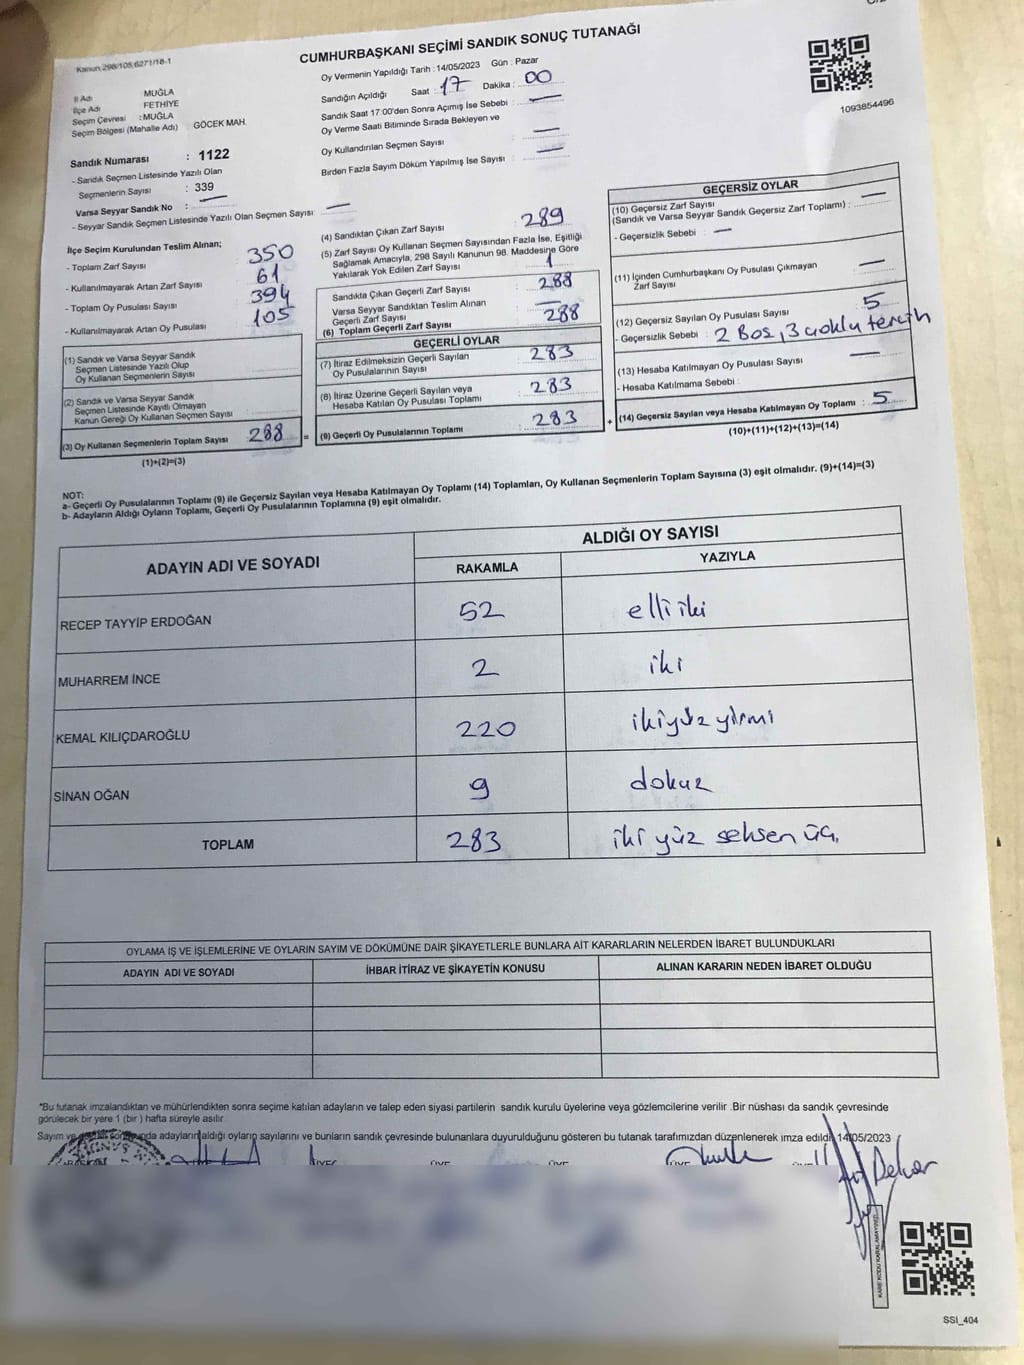 Kanun:298/105,6271/18-1
CUMHURBAŞKANI SEÇİMİ SANDIK SONUÇ TUTANAĞI
İl Adı MUĞLA
İlçe Adı FETHİYE
Seçim Çevresi : MUĞLA
Seçim Bölgesi (Mahalle Adı) GÖCEK MAH.
Sandık Numarası : 1122
- Sandık Seçmen Listesinde Yazılı Olan
Seçmenlerin Sayısı : 339
Varsa Seyyar Sandık No : —
- Seyyar Sandık Seçmen Listesinde Yazılı Olan Seçmen Sayısı: —
Oy Vermenin Yapıldığı Tarih : 14/05/2023 Gün : Pazar
Sandığın Açıldığı Saat : 17 Dakika : 00
Sandık Saat 17:00'den Sonra Açımış İse Sebebi : —
Oy Verme Saati Bitiminde Sırada Bekleyen ve
Oy Kullandırılan Seçmen Sayısı : —
Birden Fazla Sayım Döküm Yapılmış İse Sayısı : —
1093854496
İlçe Seçim Kurulundan Teslim Alınan;
- Toplam Zarf Sayısı 350
- Kullanılmayarak Artan Zarf Sayısı 61
- Toplam Oy Pusulası Sayısı 394
- Kullanılmayarak Artan Oy Pusulası 105
(1) Sandık ve Varsa Seyyar Sandık
Seçmen Listesinde Yazılı Olup
Oy Kullanan Seçmenlerin Sayısı
(2) Sandık ve Varsa Seyyar Sandık
Seçmen Listesinde Kayıtlı Olmayan
Kanun Gereği Oy Kullanan Seçmen Sayısı
(3) Oy Kullanan Seçmenlerin Toplam Sayısı 288 =
(1)+(2)=(3)
(4) Sandıktan Çıkan Zarf Sayısı : 289
(5) Zarf Sayısı Oy Kullanan Seçmen Sayısından Fazla İse, Eşitliği
Sağlamak Amacıyla, 298 Sayılı Kanunun 98. Maddesine Göre
Yakılarak Yok Edilen Zarf Sayısı : 1
Sandıkta Çıkan Geçerli Zarf Sayısı : 288
Varsa Seyyar Sandıktan Teslim Alınan
Geçerli Zarf Sayısı —
(6) Toplam Geçerli Zarf Sayısı 288
GEÇERLİ OYLAR
(7) İtiraz Edilmeksizin Geçerli Sayılan
Oy Pusulalarının Sayısı 283
(8) İtiraz Üzerine Geçerli Sayılan veya
Hesaba Katılan Oy Pusulası Toplamı 283
(9) Geçerli Oy Pusulalarının Toplamı 283 +
GEÇERSİZ OYLAR
(10) Geçersiz Zarf Sayısı
(Sandık ve Varsa Seyyar Sandık Geçersiz Zarf Toplamı) : —
- Geçersizlik Sebebi : —
(11) İçinden Cumhurbaşkanı Oy Pusulası Çıkmayan
Zarf Sayısı —
(12) Geçersiz Sayılan Oy Pusulası Sayısı : 5
- Geçersizlik Sebebi : 2 Boş, 3 çoklu tercih
(13) Hesaba Katılmayan Oy Pusulası Sayısı —
- Hesaba Katılmama Sebebi :
(14) Geçersiz Sayılan veya Hesaba Katılmayan Oy Toplamı : 5
(10)+(11)+(12)+(13)=(14)
NOT:
a- Geçerli Oy Pusulalarının Toplamı (9) ile Geçersiz Sayılan veya Hesaba Katılmayan Oy Toplamı (14) Toplamları, Oy Kullanan Seçmenlerin Toplam Sayısına (3) eşit olmalıdır. (9)+(14)=(3)
b- Adayların Aldığı Oyların Toplamı, Geçerli Oy Pusulalarının Toplamına (9) eşit olmalıdır.
ADAYIN ADI VE SOYADI ALDIĞI OY SAYISI
RAKAMLA YAZIYLA
RECEP TAYYİP ERDOĞAN 52 elli iki
MUHARREM İNCE 2 iki
KEMAL KILIÇDAROĞLU 220 ikiyüz yirmi
SİNAN OĞAN 9 dokuz
TOPLAM 283 iki yüz seksen üç
OYLAMA İŞ VE İŞLEMLERİNE VE OYLARIN SAYIM VE DÖKÜMÜNE DAİR ŞİKAYETLERLE BUNLARA AİT KARARLARIN NELERDEN İBARET BULUNDUKLARI
ADAYIN ADI VE SOYADI İHBAR İTİRAZ VE ŞİKAYETİN KONUSU ALINAN KARARIN NEDEN İBARET OLDUĞU
*Bu tutanak imzalandıktan ve mühürlendikten sonra seçime katılan adayların ve talep eden siyasi partilerin sandık kurulu üyelerine veya gözlemcilerine verilir .Bir nüshası da sandık çevresinde
görülecek bir yere 1 (bir ) hafta süreyle asılır.
Sayım ve adayların aldığı oyların sayılarını ve bunların sandık çevresinde bulunanlara duyurulduğunu gösteren bu tutanak tarafımızdan düzenlenerek imza edildi. 14/05/2023
SSI_404